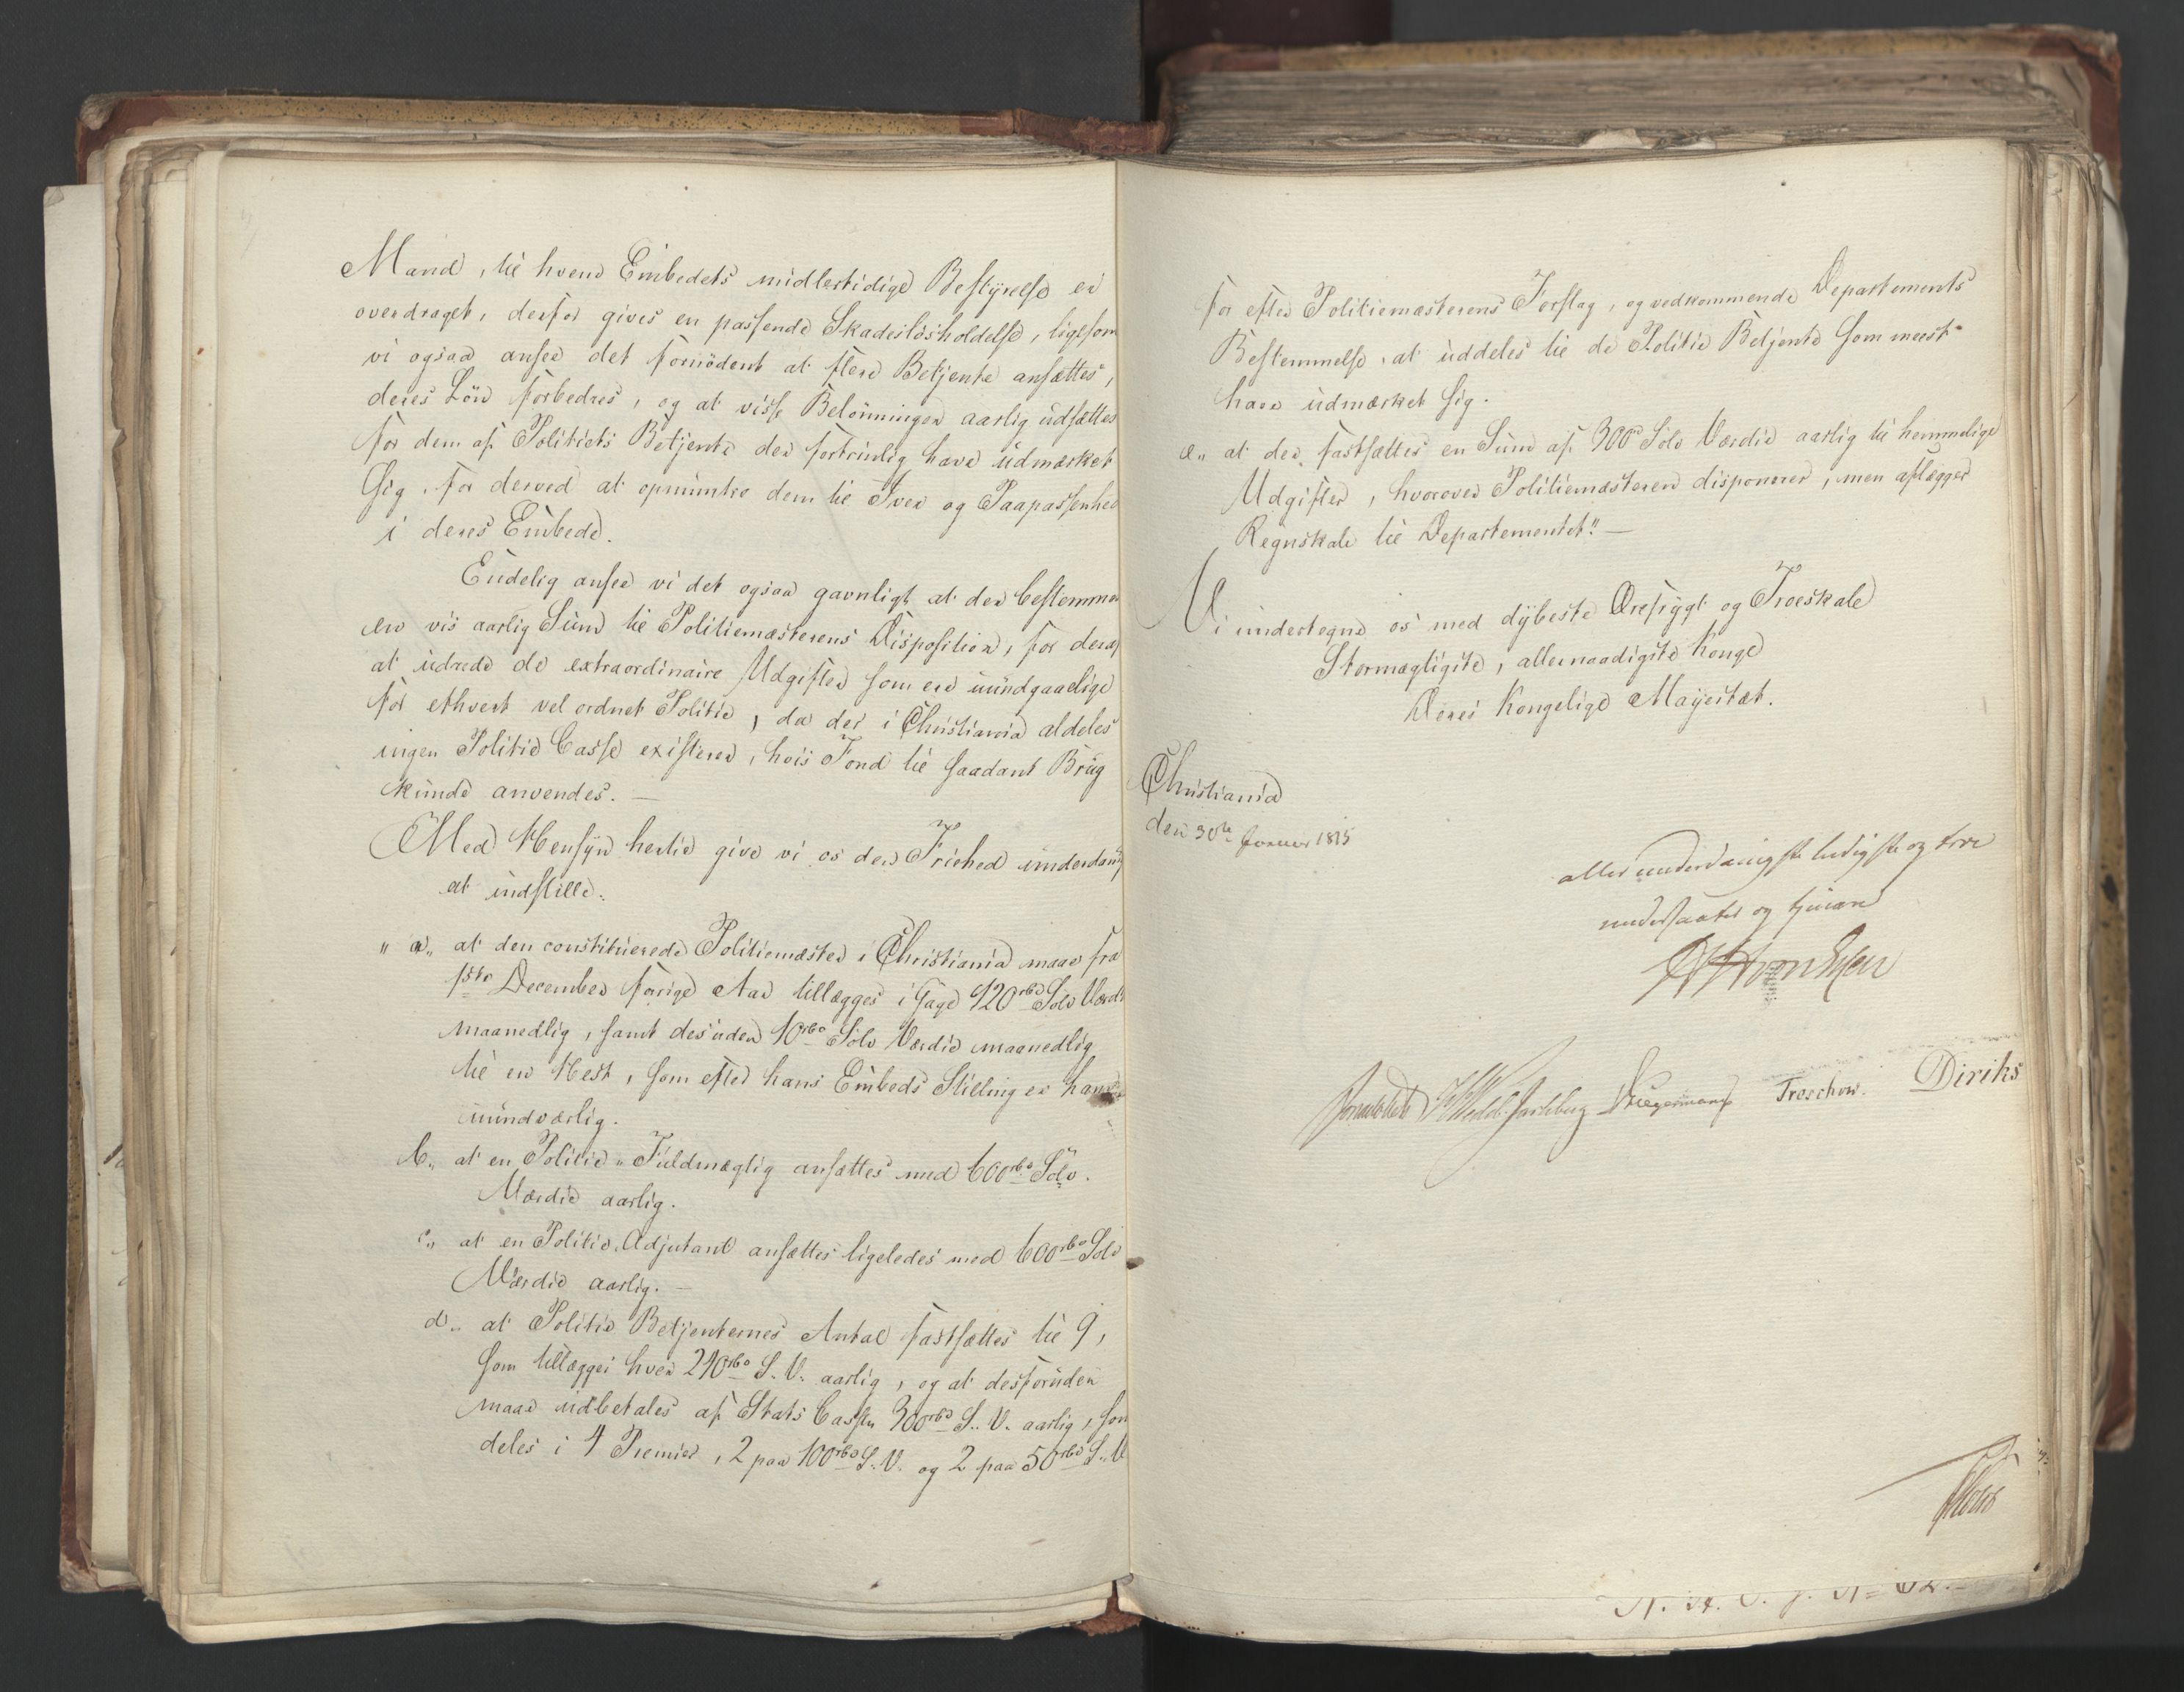 Mand, til hvem Embedets midlertidige Bestyrelse er
overdraget, derfor gives en passende Skadesløsholdelse, ligesom
vi ogsaa ansee det fornødent at flere Betjente ansættes,
deres Løn forbedres, og at visse Belønninger aarlig udsættes
for dem af Politiets Betjente der fortrinlig have udmærket
sig, for derved at opmuntre dem til Iver og Paapassenhed
i deres Embede.
Endelig ansee vi det ogsaa gavnligt at der bestemmes
en vis aarlig Sum til Politiemesterens Disposition, for deraf
at udrede de extraordinaire Udgifter som ere uundgaaelige
for ethvert vel ordnet Politie, da der i Christiania aldeles
ingen Politie Casse existerer, hvis Fond til saadant Brug
kunde anvendes. —
Med Hensyn hertil give vi os den Friehed underdanigst
at indstille:
" a„ at den constituerede Politiemester i Christiania maae fra
1ste December forrige Aar tillægges i Gage 120 rbd Sølv Værdie
maanedlig, samt desuden 10 rbd Sølv Værdie maanedlig
til en Hest, som efter hans Embeds Stilling er ham
uundværlig.
b„ at en Politie-Fuldmægtig ansættes med 600 rbd Sølv
Værdie aarlig.
c„ at en Politie Adjutant ansættes ligeledes med 600 rbd Sølv
Værdie aarlig. —
d„ at Politie Betjenternes Antal fastsættes til 9,
som tillægges hver 240 rbd S. V. aarlig, og at desforuden
maae udbetales af Stats Cassen 300 rbd S. V. aarlig, som
deles i 4 Premier, 2 paa 100 rbd S. V. og 2 paa 50 rbd S. V.
for efter Politiemesterens Forslag, og vedkommende Departements
Bestemmelse, at uddeles til de Politie Betjente som meest
have udmærket sig.
e„ at der fastsættes en Sum af 300 rd Sølv Værdie aarlig til hemmelige
Udgifter, hvorover Politiemesteren disponerer, men aflægger
Regnskab til Departementet." —
Vi undertegne os med dybeste Ærefrygt og Troeskab
Stormægtigste, allernaadigste Konge
Deres Kongelige Mayestæt.
Christiania
den 30te Januar 1815
allerunderdanigste lydigste og troe
undersaatter og tjenere
Sommerhielm H Wedel Jarlsberg Krieger Treschow. Diriks